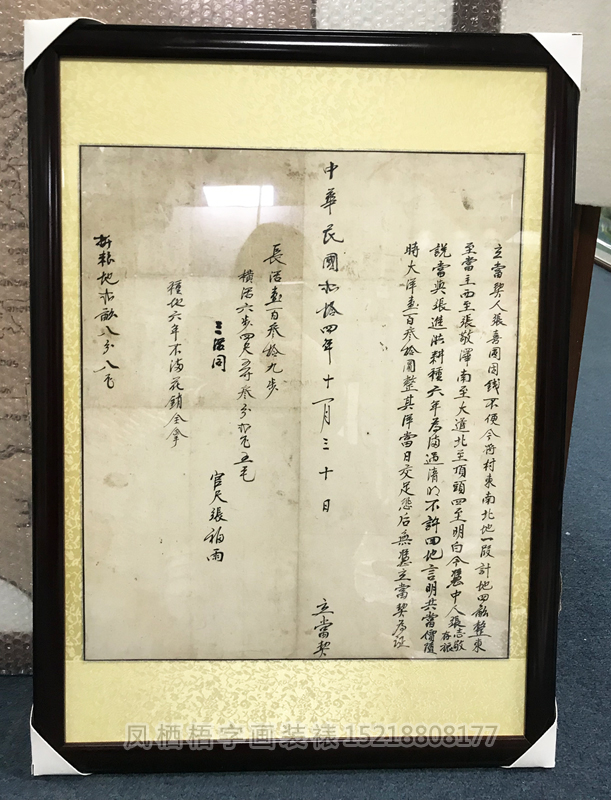 立當契人張喜圍因錢不便今将村東南北地一段計地四畝整東
至當主西至張敬澤南至大道北至頂頭四至明白今憑中人張志敬
存根
說當與張進洪耕種六年為滿過清明不許回地言明共當價隨
時大洋壹百叁拾圓整其洋當日交足恐后無憑立當契為証
立當契
中華民國弍拾四年十一月三十日
長活壹百叁拾九步
橫活六步四尺五寸叁分弍厘五毛
三活同
官尺張福雨
種地六年不滿花銷全拿
折粮地弍畝八分八厘
凤栖梧字画装裱15218808177